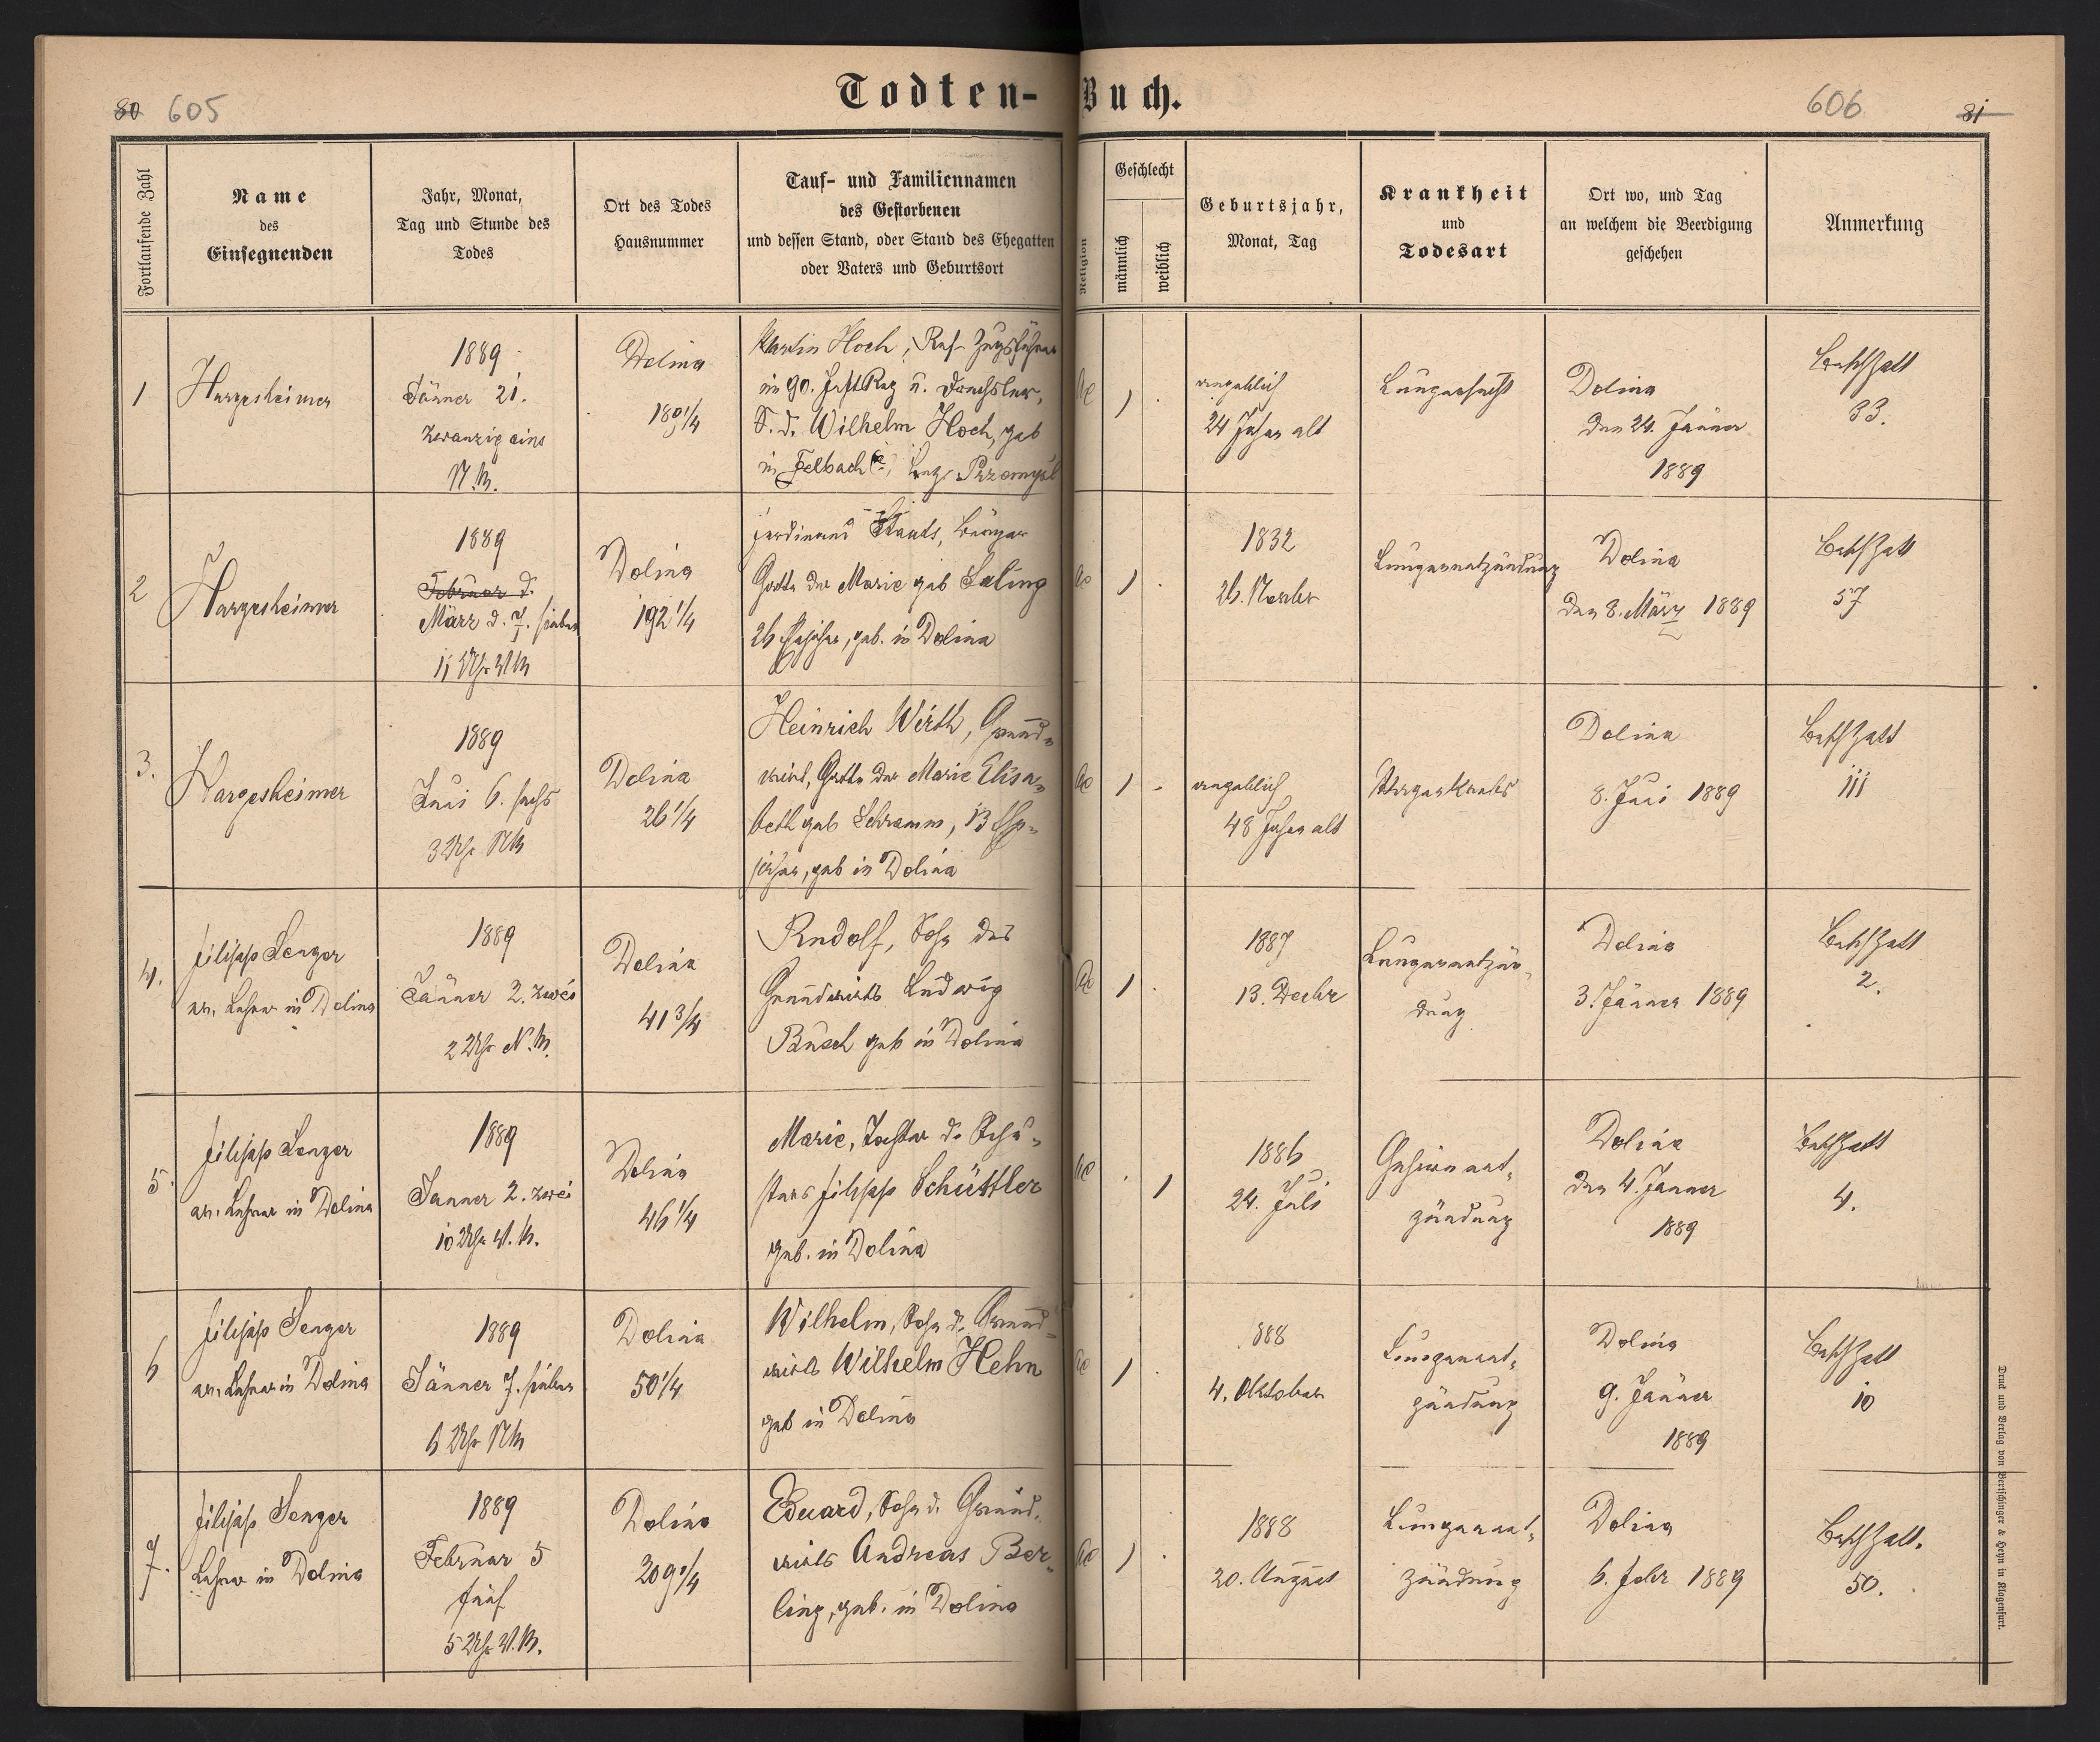 Todten-Buch.
80 605
606 81
Fortlaufende Zahl
Name
des
Einsegnenden
Jahr, Monat,
Tag und Stunde des
Todes
Ort des Todes
Hausnummer
Tauf- und Familiennamen
des Gestorbenen
und dessen Stand, oder Stand des Ehegatten
oder Vaters und Geburtsort
Religion
Geschlecht
männlich
weiblich
Geburtsjahr,
Monat, Tag
Krankheit
und
Todesart
Ort wo, und Tag
an welchem die Beerdigung
geschehen
Anmerkung
1
Hargesheimer
1889
Jänner 21.
zwanzig eins
N.M.
Dolina
Martin Hoch, Res. Zugsführer
im 90. Inft Reg u. Drechsler,
S. d. Wilhelm Hoch, geb
in Felbach Bez. Przemysl
1
angeblich
24 Jahre alt
Lungensucht
Dolina
den 24. Jänner
1889
33.
2
Hargesheimer
1889
Februar d.
März d. 7. sieben
11 Uhr VM
Dolina
192 1/4
Ferdinand Staats, Bürger
Gatte der Marie geb Saling
26 Ehejahre, geb. in Dolina
1
1832
26. Novbr
Lungenentzündung
Dolina
den 8. März 1889
57
3.
Hargesheimer
1889
Juni 6. sechs
3 Uhr NM
Dolina
26 1/4
Heinrich Wirth, Grund-
wirt, Gatte der Marie Elisa-
beth geb Schramm, 13 Ehe-
jahre, geb in Dolina
1
angeblich
48 Jahre alt
Magenkrebs
Dolina
8. Juni 1889
111
4.
Filipp Senger
ev. Lehrer in Dolina
1889
Jänner 2. zwei
2 Uhr N.M.
Dolina
41 3/4
Rudolf, Sohn des
Grundwirts Ludwig
Busch geb in Dolina
1
1887
13. Decbr
Lungenentzün-
dung
Dolina
3. Jänner 1889
2.
5.
Filipp Senger
ev. Lehrer in Dolina
1889
Jänner 2. zwei
10 Uhr V.M.
Dolina
46 1/4
Marie, Tochter d. Schu-
sters Filipp Schüttler
geb. in Dolina
1
1886
24. Juli
Gehirnent-
zündung
Dolina
den 4. Jänner
1889
4.
6
Filipp Senger
ev. Lehrer in Dolina
1889
Jänner 7. sieben
6 Uhr NM
Dolina
50 1/4
Wilhelm, Sohn d. Grund-
wirts Wilhelm Hehn
geb in Dolina
1
888
4. Oktober
Lungenent-
zündung
Dolina
9. Jänner
1889
10
7.
Filipp Senger
Lehrer in Dolina
1889
Februar 5
fünf
5 Uhr V.M.
Dolina
209 1/4
Eduard, Sohn d. Grund-
wirts Andreas Ber-
ling, geb. in Dolina
1
1888
20. August
Lungenent-
zündung
Dolina
6. Febr 1889
50.
Druck und Verlag von Bertschinger & Heyn in Klagenfurt.